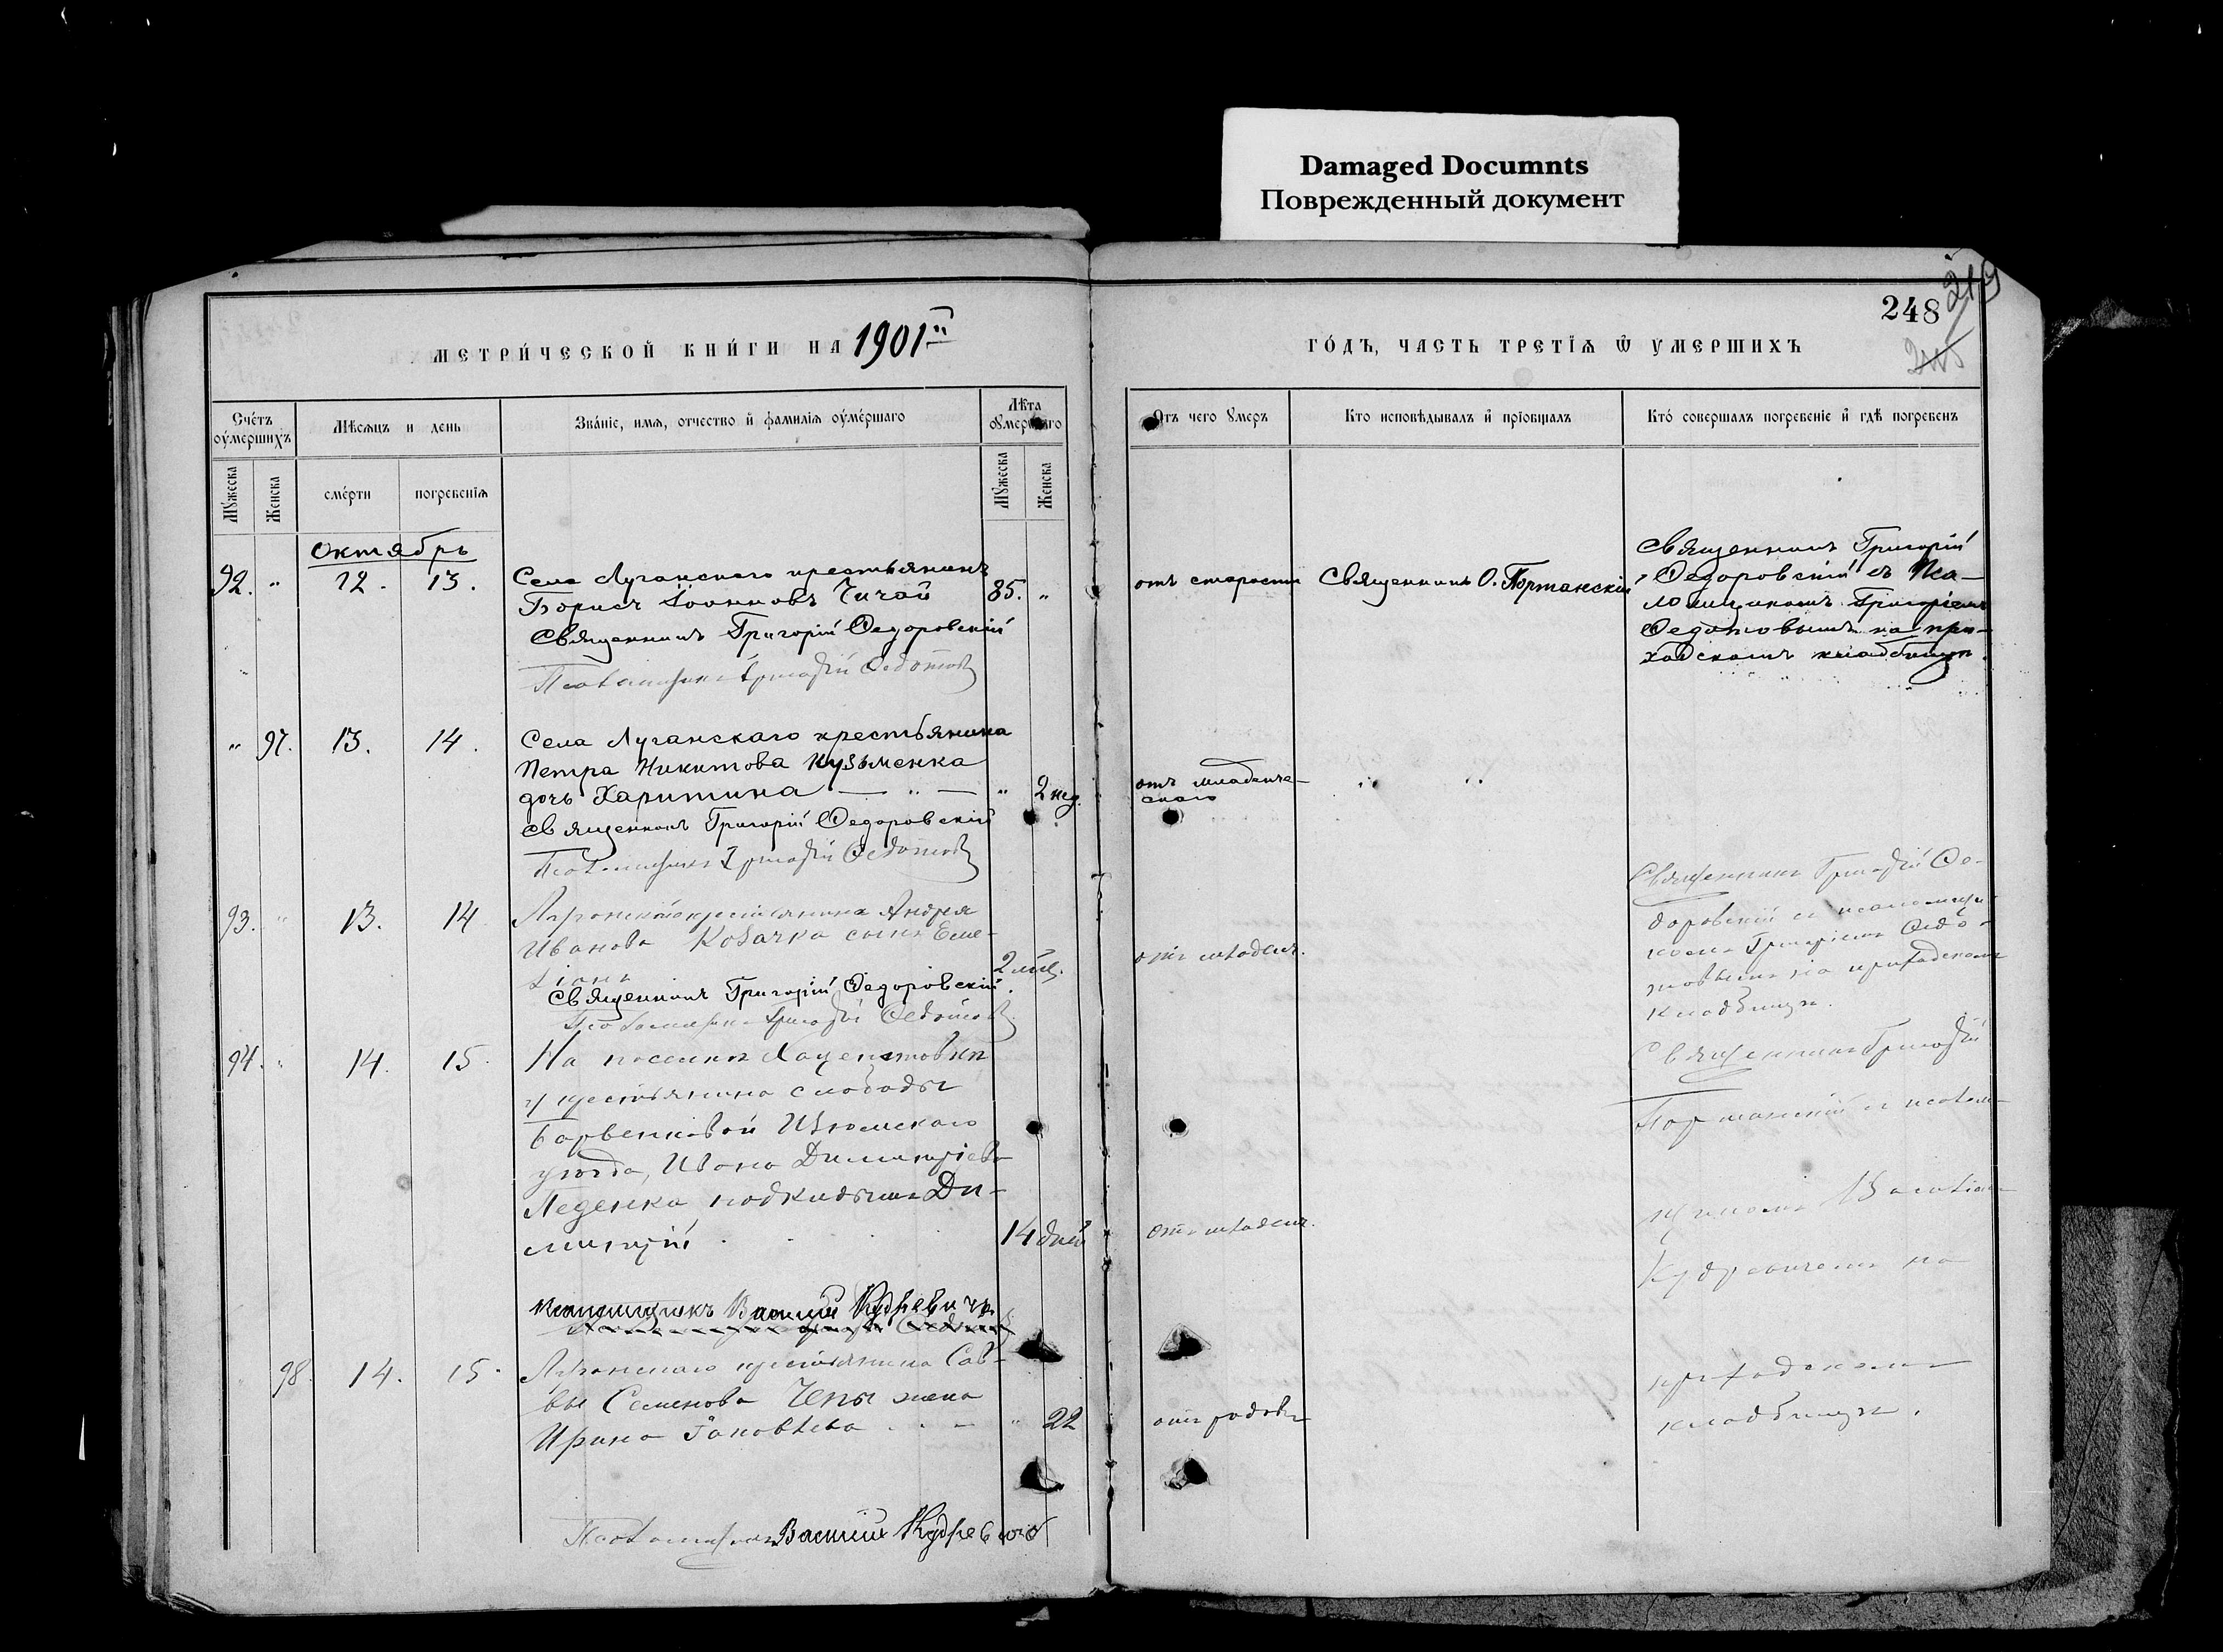 Damaged Documnts
Поврежденный документ
248
219
МЕТРИ́ЧЕСКОЙ КНИ́ГИ НА 1901й
ГО́ДЪ, ЧАСТЬ ТРЕТІѦ Ѿ УМЕРШИХЪ
Сче́тъ оу҆ме́ршихъ
Мѣсѧцъ и день
Зва́нїе, имѧ, отчество и҆ фамилїѧ оу҆ме́ршаго
Лѣ́та оумершаго
Отъ чего умеръ
Кто исповѣдывалъ и҆ прїобщалъ
Кто́ совершалъ погребенїе и҆ гдѣ погребенъ
Мужеска
Женска
сме́рти
погребенїѧ
Мужеска
Женска
Октябрь
92. " 12. 13. Села Луганскаго крестьянинъ
Борисъ Іоанновъ Чичай 85. "
Священникъ Григорій Федоровскій
Псаломщикъ Григорій Федотовъ
отъ старости
Священникъ О. Портанскій
Священникъ Григорій
Федоровскій съ Пса-
ломщикомъ Григоріемъ
Федотовымъ на при-
ходскомъ кладбищѣ.
" 97. 13. 14. Села Луганскаго крестьянина
Петра Никитова Кузьменка
дочь Харитина — " — " 2 нед.
Священникъ Григорій Федоровскій
Псаломщикъ Григорій Федотовъ
отъ младенче-
скаго
" "
93. " 13. 14 Луганскаго крестьянина Андрея
Иванова Козачка сынъ Еме-
ліанъ 2 мѣс.
Священникъ Григорій Федоровскій
Псаломщикъ Григорій Федотовъ
отъ младенч.
Священникъ Григорій Фе-
доровскій съ псаломщи-
комъ Григоріемъ Федо-
товымъ на приходскомъ
кладбищѣ.
94. " 14. 15. На поселкѣ
у крестьянина слободы
Барвенковой Изюмскаго
уѣзда, Ивана Димитріева
Леденка подкидышъ Ди-
митрій 14 дней
Псаломщикъ Василій Кудревичъ
отъ младенч.
Священникъ Григорій
Портанскій съ псалом-
щикомъ Василіемъ
Кудревичемъ на
приходскомъ
кладбищѣ.
98. 14. 15. Луганскаго крестьянина Сав-
вы Семенова Чепы жена
Ирина Іаковлева " 22
отъ родовъ
Псаломщикъ Василій Кудревичъ